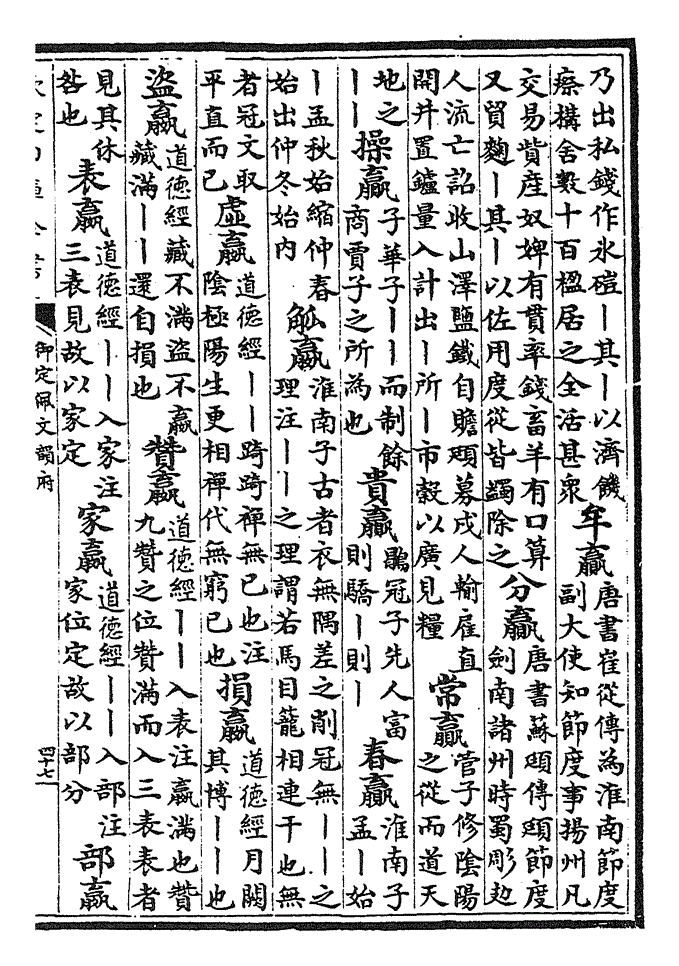 乃出私錢作氷磑丨其丨以濟饑瘵構舍數十百楹居之全活甚衆 牟贏 唐書崔從傳為淮南節度副大使知節度事揚州凡
交易貲産奴婢有貫率錢畜羊有口算又貿麴丨其丨以佐用度從皆蠲除之 分贏 唐書蘇頲傳頲節度劍南諸州時蜀彫
人流亡詔收山澤鹽鐵自贍頲募戍人輸雇直開井置鑪量入計出丨所丨市糓以廣見糧 常贏 管子修隂陽之從而道天
地之丨丨 操贏 子華子丨丨而制餘商賈子之所為也 貴贏 鶡冠子先人富則驕丨則丨 春贏 淮南子孟丨始
丨孟秋始縮仲春始出仲冬始内 觚贏 淮南子古者衣無隅差之削冠無丨丨之理注丨丨之理謂若馬目籠相連干也無
者冠文取平直而已 虛贏 道德經丨丨踦踦禪無已也注隂極陽生更相禪代無窮已也 損贏 道德經月闕其博丨丨也
盜贏 道德經藏不滿盜不贏藏滿丨丨還自損也 贊贏 道德經丨丨入表注贏滿也贊九贊之位贊滿而入三表表者
見其休咎也 表贏 道德經丨丨入家注三表見故以家定 家贏 道德經丨丨入部注家位定故以部分 部贏
御定佩文韻府
四十七